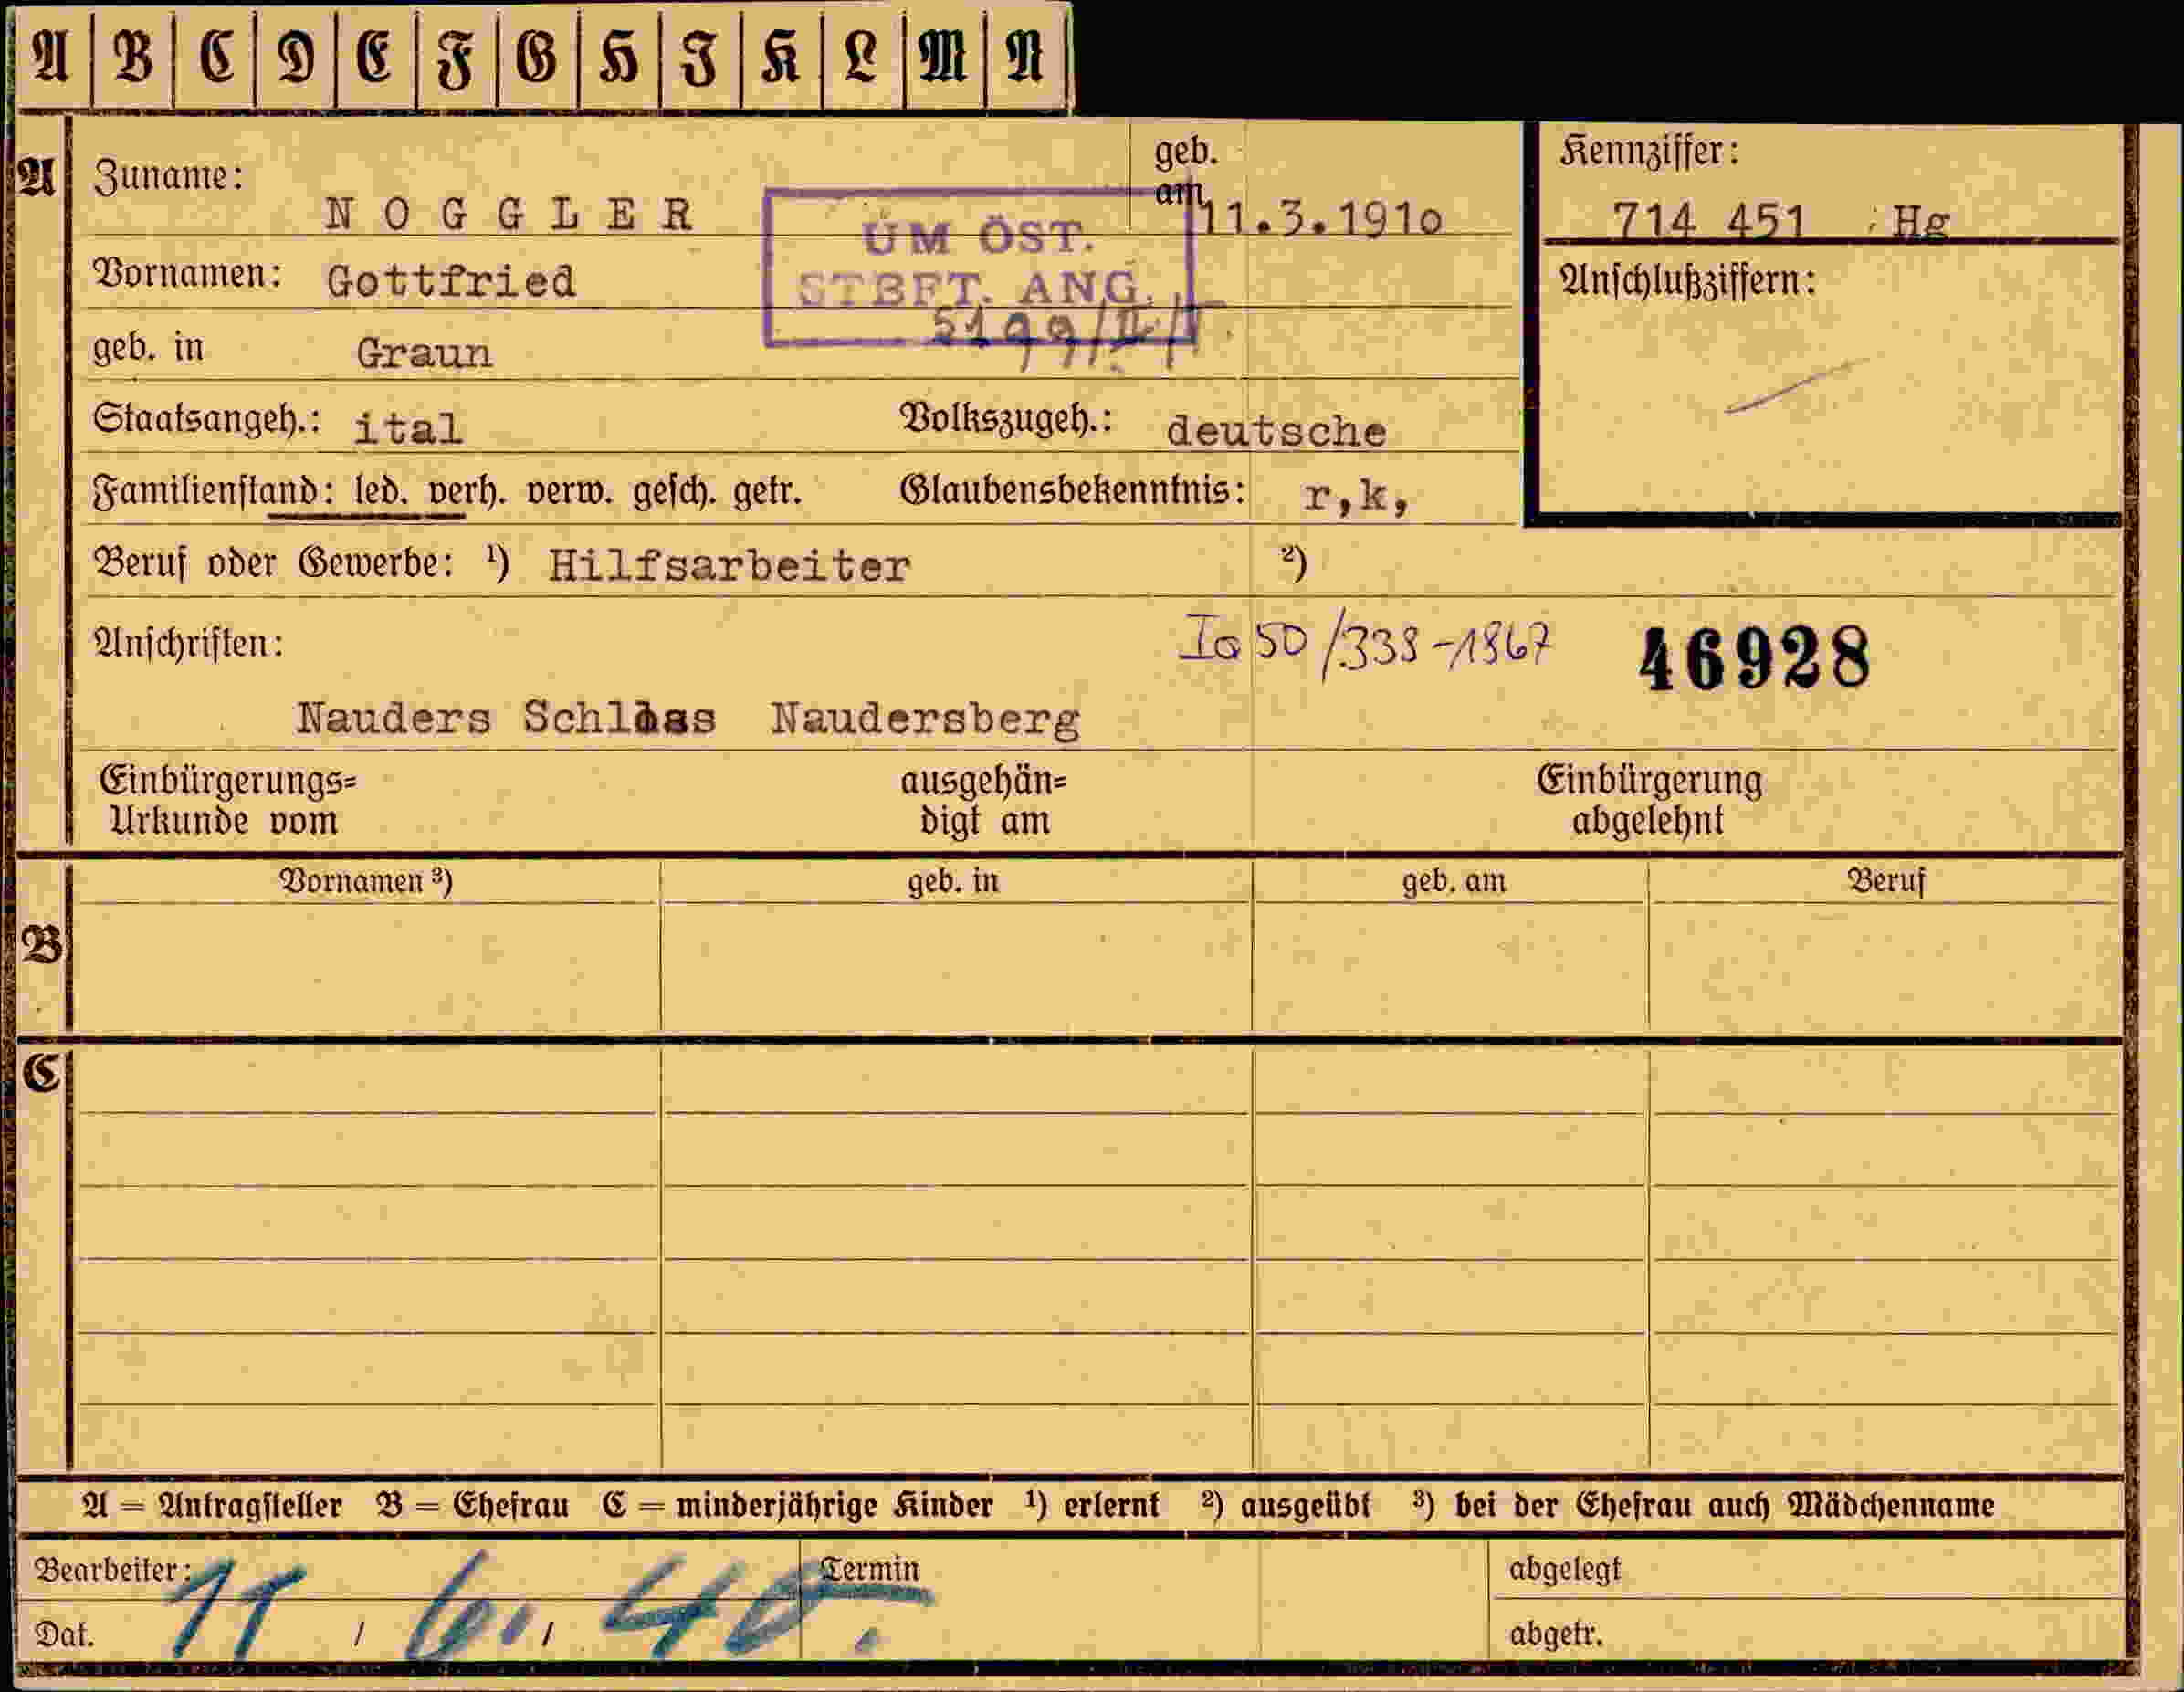 A B C D E F G H I K L M N
A Zuname: NOGGLER geb. am 11.3.1910
Kennziffer: 714 451 Hg
UM ÖST. STBFT. ANG.
5199/II/
Vornamen: Gottfried
Anschlußziffern:
geb. in Graun
Staatsangeh.: ital Volkszugeh.: deutsche
Familienstand: led. verh. verw. gesch. getr. Glaubensbekenntnis: r,k,
Beruf oder Gewerbe: ¹) Hilfsarbeiter ²)
Anschriften: Ia 50/338-1867 46928
Nauders Schloss Naudersberg
Einbürgerungs= Urkunde vom ausgehän= digt am Einbürgerung abgelehnt
Vornamen ³) geb. in geb. am Beruf
B
C
A = Antragsteller B = Ehefrau C = minderjährige Kinder ¹) erlernt ²) ausgeübt ³) bei der Ehefrau auch Mädchenname
Bearbeiter: Termin abgelegt
Dat. 11 / 6. / 40. abgetr.